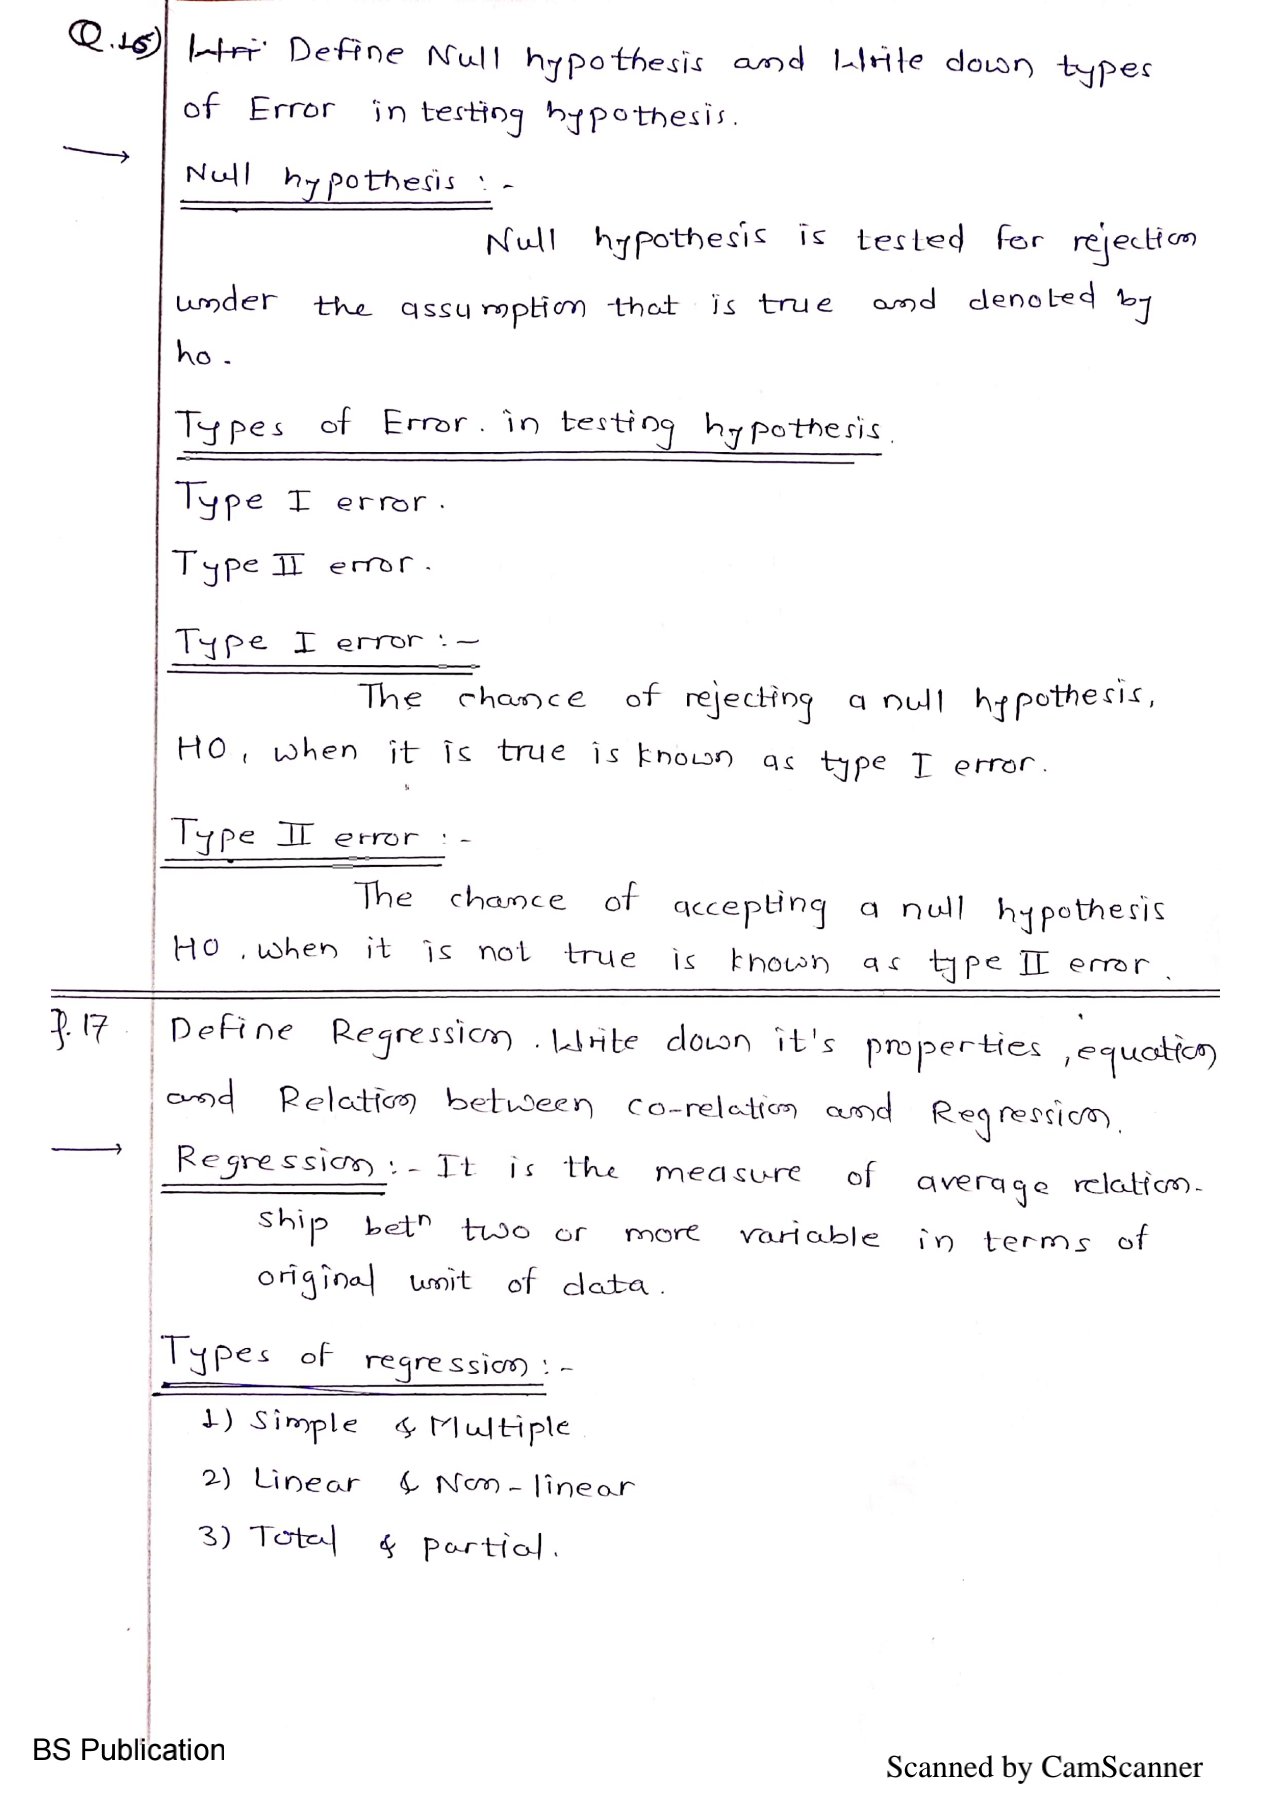 Q.16) Define Null hypothesis and Write down types
of Error in testing hypothesis.
Null hypothesis :-
Null hypothesis is tested for rejection
under the assumption that is true and denoted by
ho.
Types of Error. in testing hypothesis.
Type I error.
Type II error.
Type I error :-
The chance of rejecting a null hypothesis,
HO, when it is true is known as type I error.
Type II error :-
The chance of accepting a null hypothesis
HO, when it is not true is known as type II error.
17 Define Regression. Write down it's properties, equation
and Relation between co-relation and Regression.
Regression :- It is the measure of average relation-
ship betn two or more variable in terms of
original unit of data.
Types of regression :-
1) Simple & Multiple
2) Linear & Non-linear
3) Total & partial.
BS Publication
Scanned by CamScanner